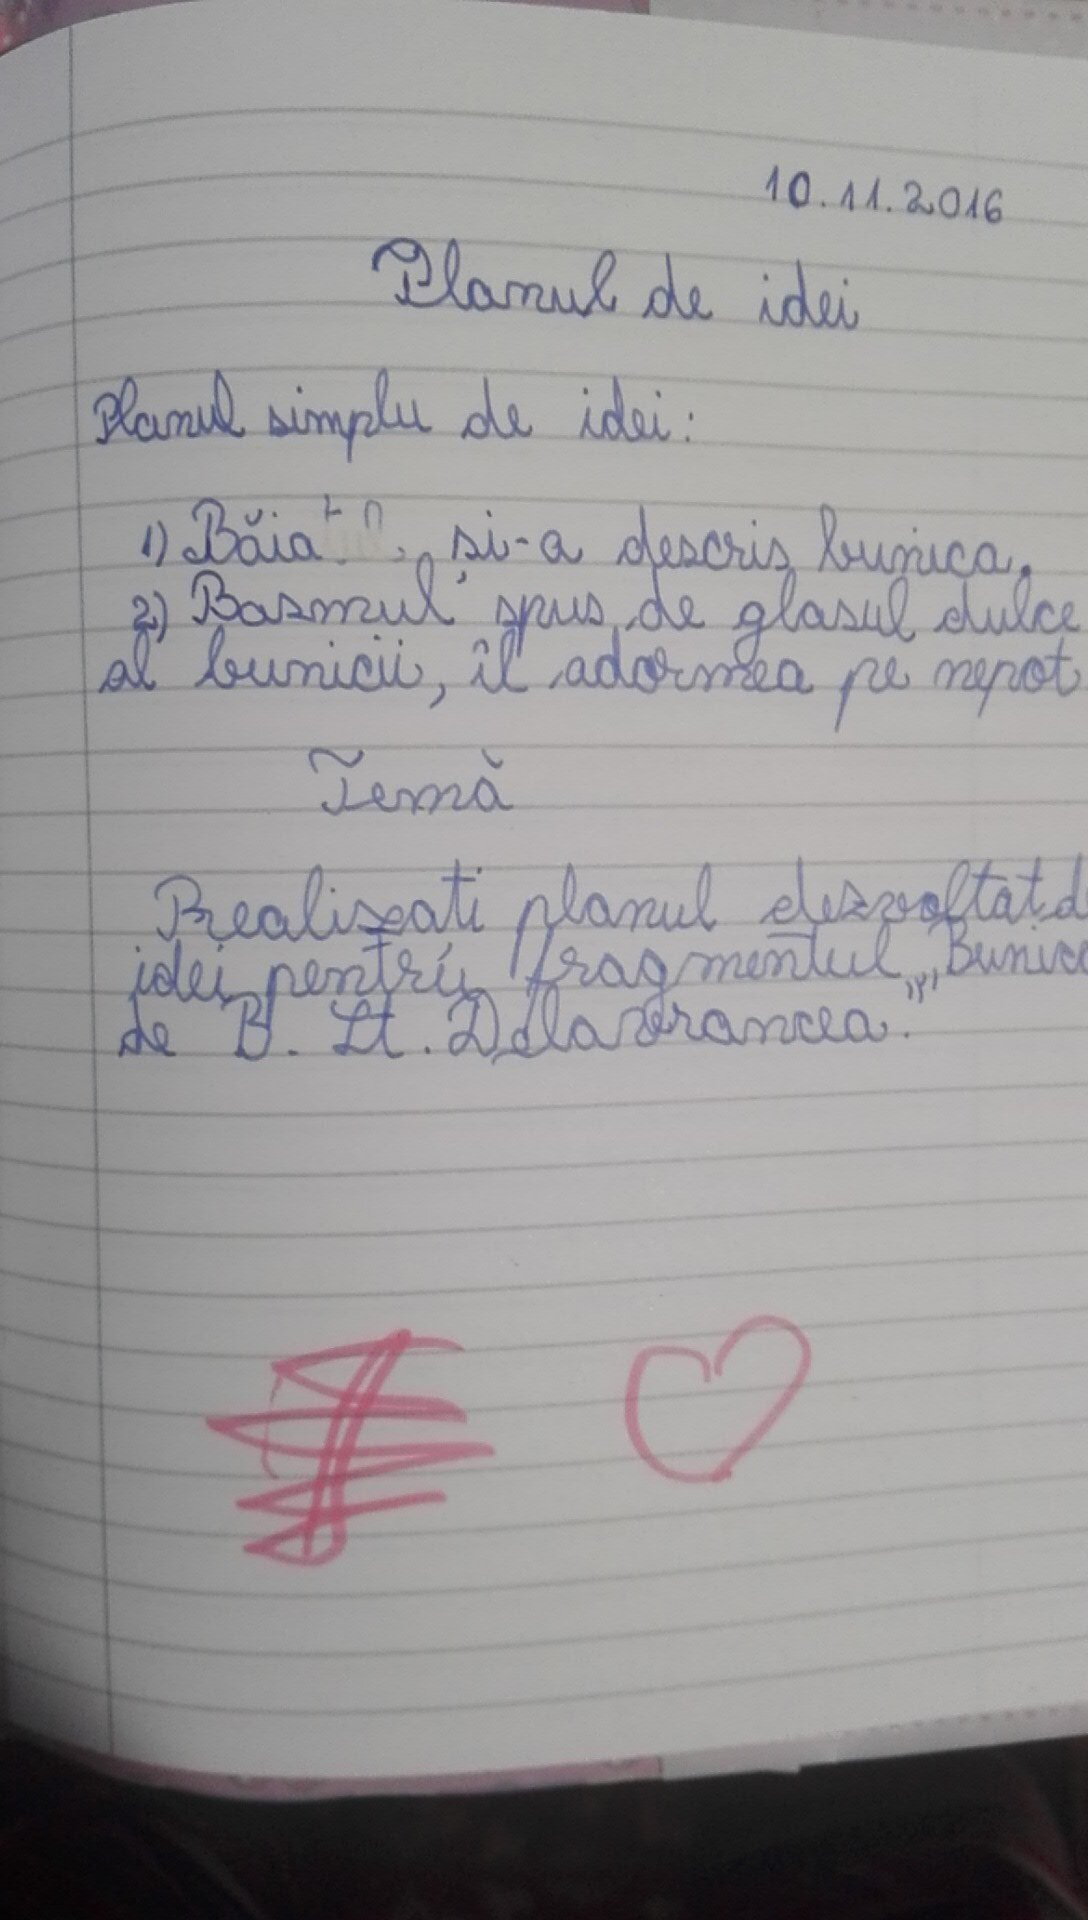 10.11.2016
Planul de idei
Planul simplu de idei:
1) Băiat și-a descris bunica.
2) Basmul spus de glasul dulce
al bunicii, îl adormea pe nepot
Temă
Realizati planul dezvoltat d
idei pentru fragmentul „Bunica
de B. Șt. Dlavrancea.